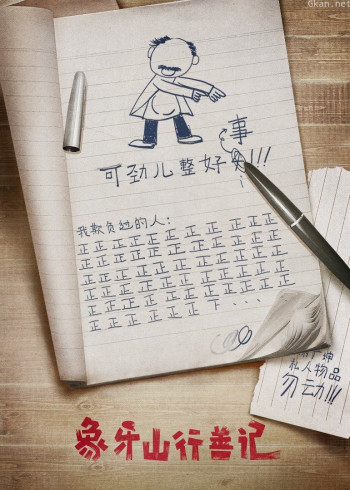 Gkan.net
事
可劲儿整好!!!
我欺负过的人：
正正正正正正正正正正
正正正正正正正正正正
正正正正正正正正正正
正正正正正正正正正正
正正正正正正正正正正
正正正正正下...
坤
私人物品
勿动!!!
象牙山行善记